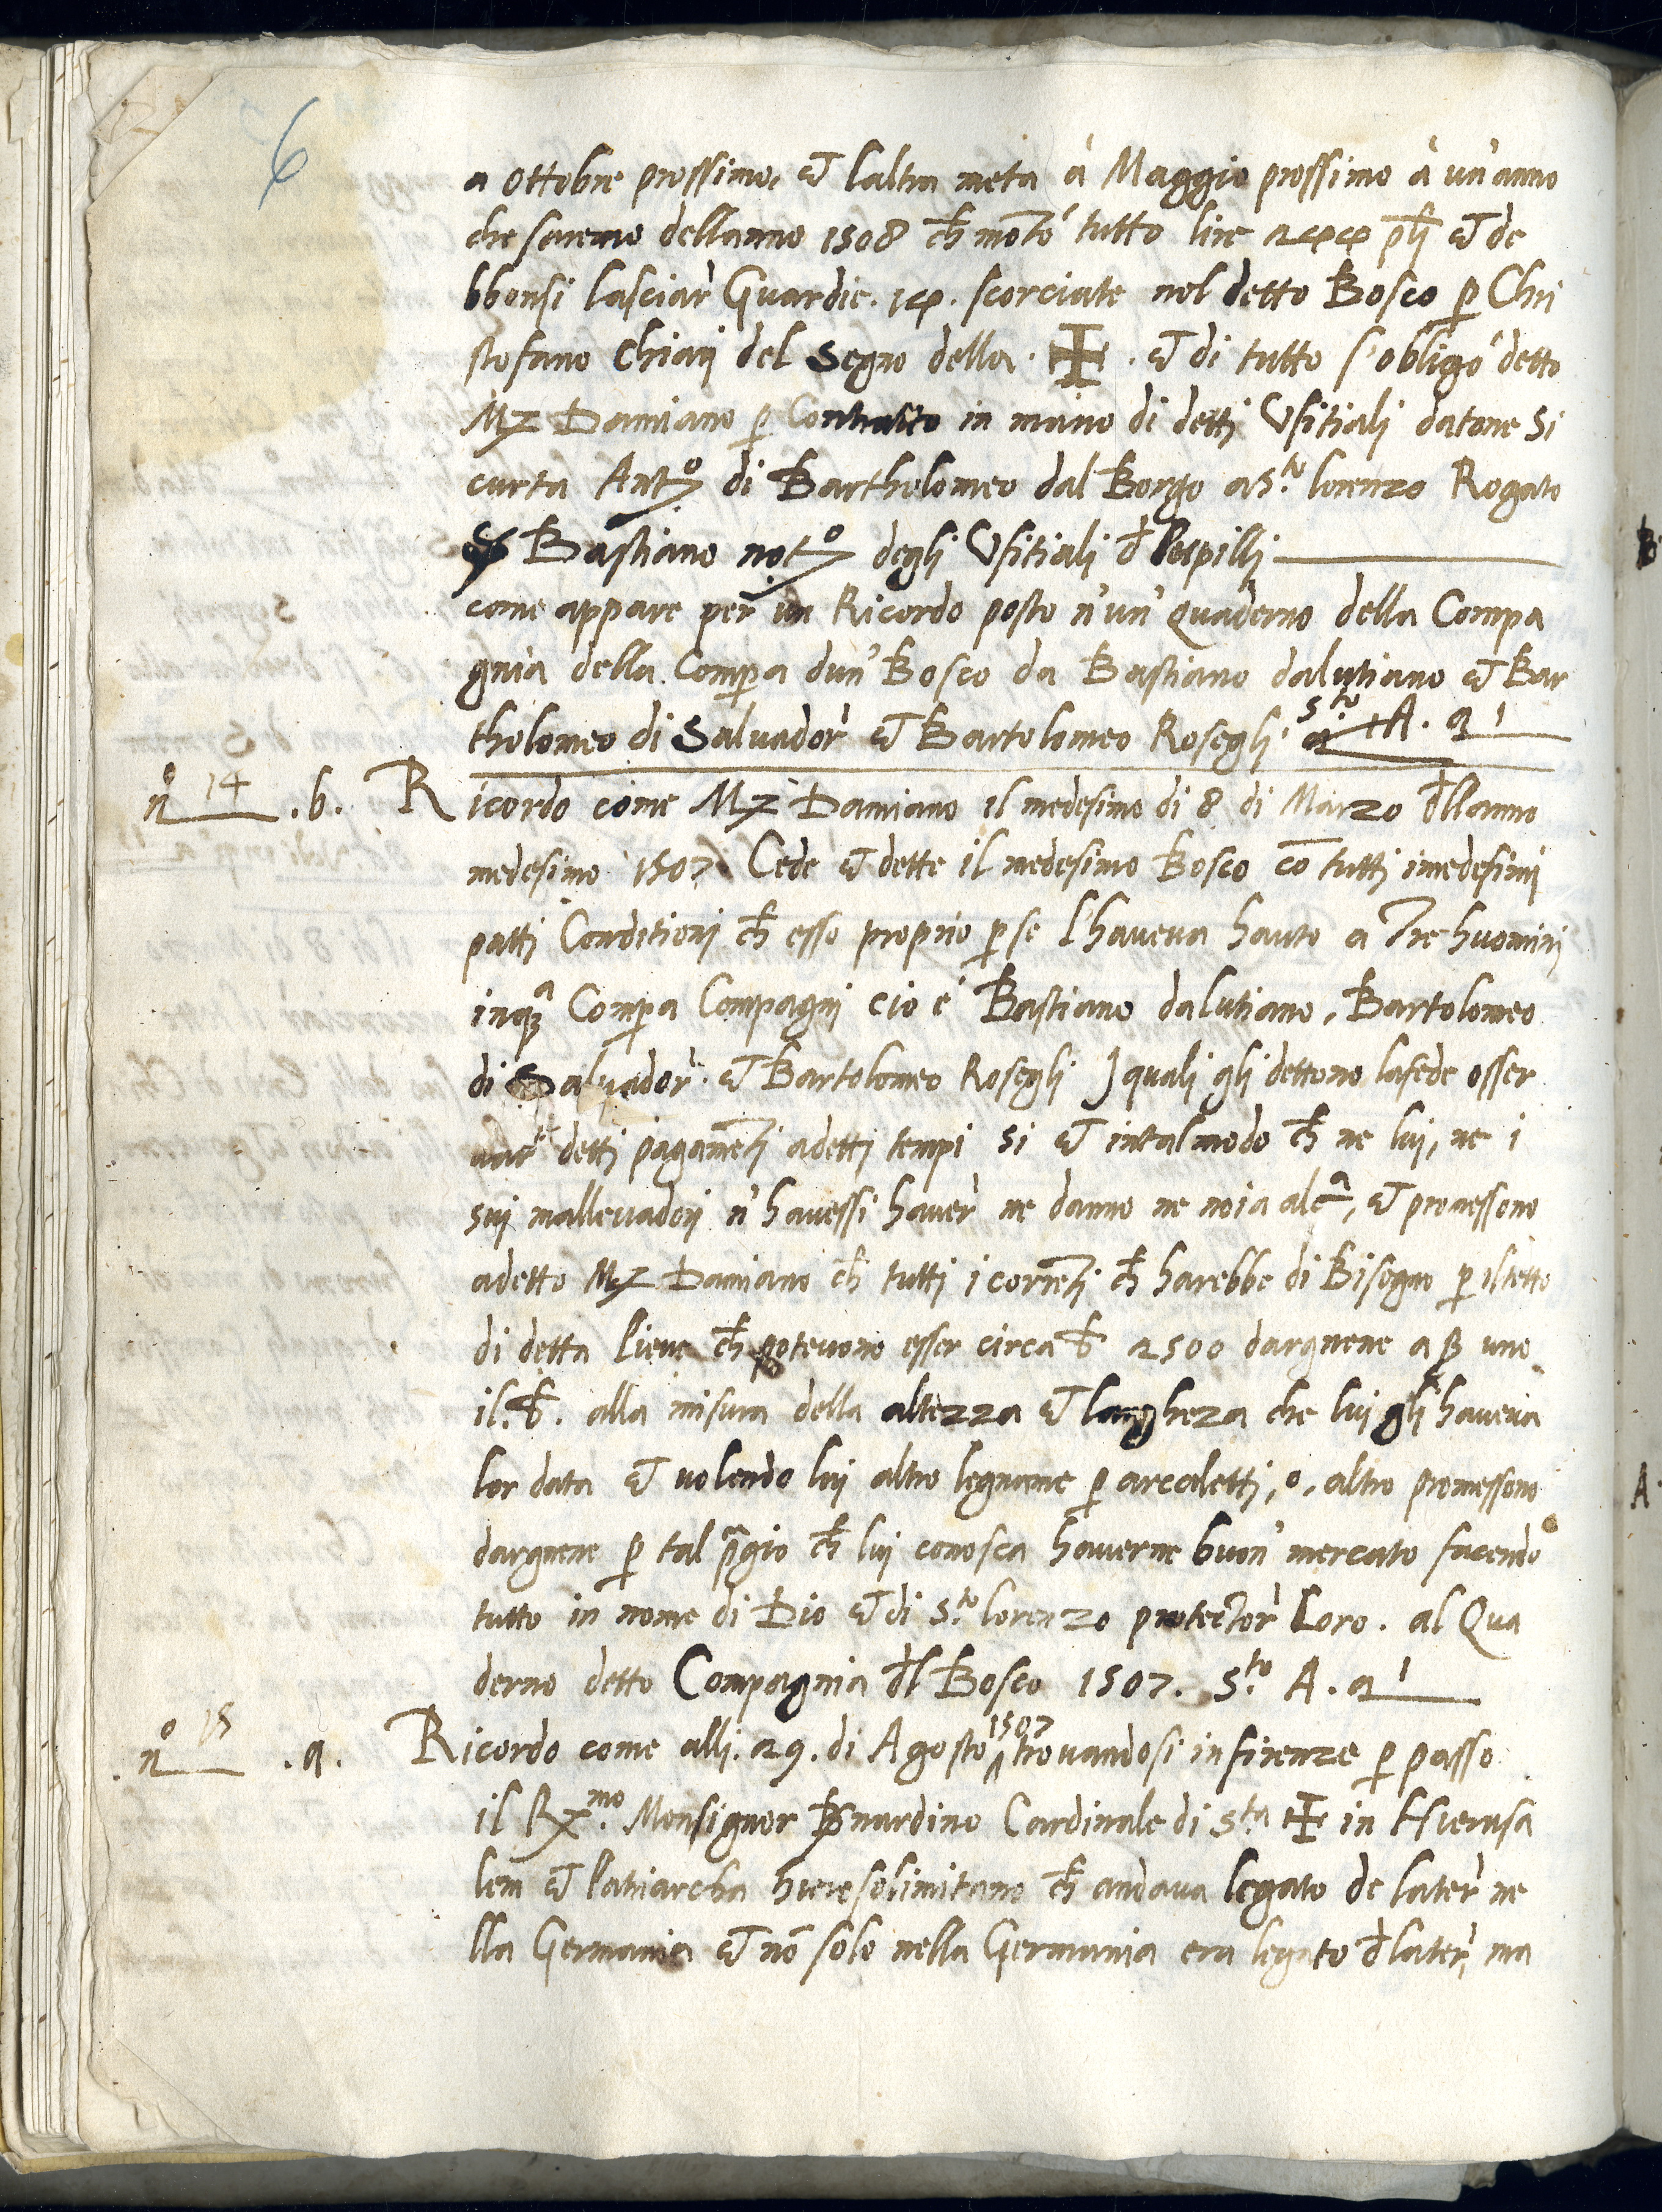 6
a Ottobre prossimo, et laltra meta à Maggio prossimo à un'anno
che saremo dellanno 1508 ch̄ mōtò tutto lire 2400 p̄lj et de
bbonsi lasciar̀ Guardie. 14. scorciate nel detto Bosco p̱ Chri
stofano Chiarj del Segno della. ✠. et di tutto s'obligò detto
Mz Damiano p̱ Contratto in mano di dettj Vfitialj datone si
curta Antº di Bartholomeo dal Borgo a S.to lorenzo Rogato
S Bastiano notº deglj Vfitialj d̄ Pupillj
come appare per un Ricordo posto n'un' quaderno della Compa
gnia della Comp̱a dun' Bosco da Bastiano dalutiano et Bar
tholomeo di Salvador̀ et Bartolomeo Roseglj. Sto A. 21
nº 14 .b. Ricordo come Mz Damiano il medesimo di 8 di Marzo d̄llanno
medesimo 1507 Cede et dette il medesimo Bosco cō tuttj imedesimj
pattj Conditionj ch̄ esso proprio p̱ se l'haveva hauto a Tre huominj
inqª Comp̱a Compagnj cio é Bastiano dalutiano, Bartolomeo
di Salvador̀. et Bartolomeo Roseglj Jqualj glj dettono lafede osser
var̀ dettj pagamētj adettj tempi si et intalmodo ch̄ ne luj, ne i
suj mallevadorj n'havessi haver̀ ne danno ne noia alcª, et promessono
adetto Mz Damiano ch̄ tuttj i corrētj ch̄ harebbe di Bisogno p̱ iltetto
di detta Pieve ch̄ potevono esser circa b̄ 2500 dargnene a β uno
il. b̄. alla misura della altezza et largheza che luj glj haveva
lor data et volendo luj altro legname p̱ arcalettj, o, altro promessono
dargnene p̱ tal p̄gio ch̄ luj conosca haverne buon' mercato facendo
tutto in nome di Dio et di S.to lorenzo protector̀ Loro. al Qua
derno detto Compagnia d̄l Bosco 1507. S.to A. 21
nº 15 .a. Ricordo come allj. 29. di Agosto 1507 trovandosi in firenze p̱ passo
il Rx.mo Monsignor Bernardino Cardinale di S.ta ✠ in Hierusa
lem et Patriarcha hierosolimitano ch̄ andava legato de later̀ ne
lla Germania et nō solo nella Germania era legato d̄ later̀, ma